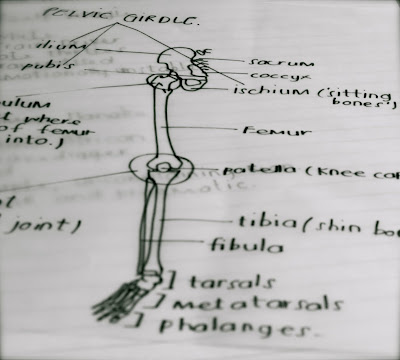 PELVIC GIRDLE.
ilium
pubis
sacrum
coccyx
ischium (sitting
bones')
ulum
where
of femur
into.)
Femur
patella (Knee ca
joint)
tibia (shin bo
fibula
] tarsals
] metatarsals
] phalanges.